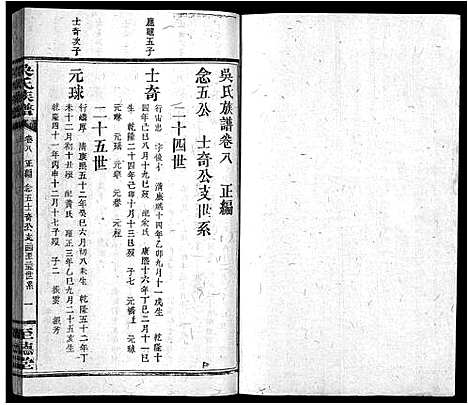 吳氏族譜卷八 正編
念五公 士奇公支世系
二十四世
應聰五子
士奇
行宙忠 字俊千 清康熙十四年乙卯九月十一戌生 乾隆十
四年己巳八月十九巳歿 配宋氏 康熙十六年丁巳二月初
乾隆二十四年己卯十月三十巳歿 子七 元橋 上
元球 元瑞 元章 元 元柱
二十五世
士奇次子
元球
行嶙厚 清康熙五十二年癸巳六月初六未生 乾隆五十二年丁
未十二月初十亥歿 配黃氏 雍正三年乙巳九月二十五亥生
四十一年丙申十二月十二歿 子二 振雲 振芳
吳氏族譜
卷八 正編 念五士奇公支 世系 一
至德堂